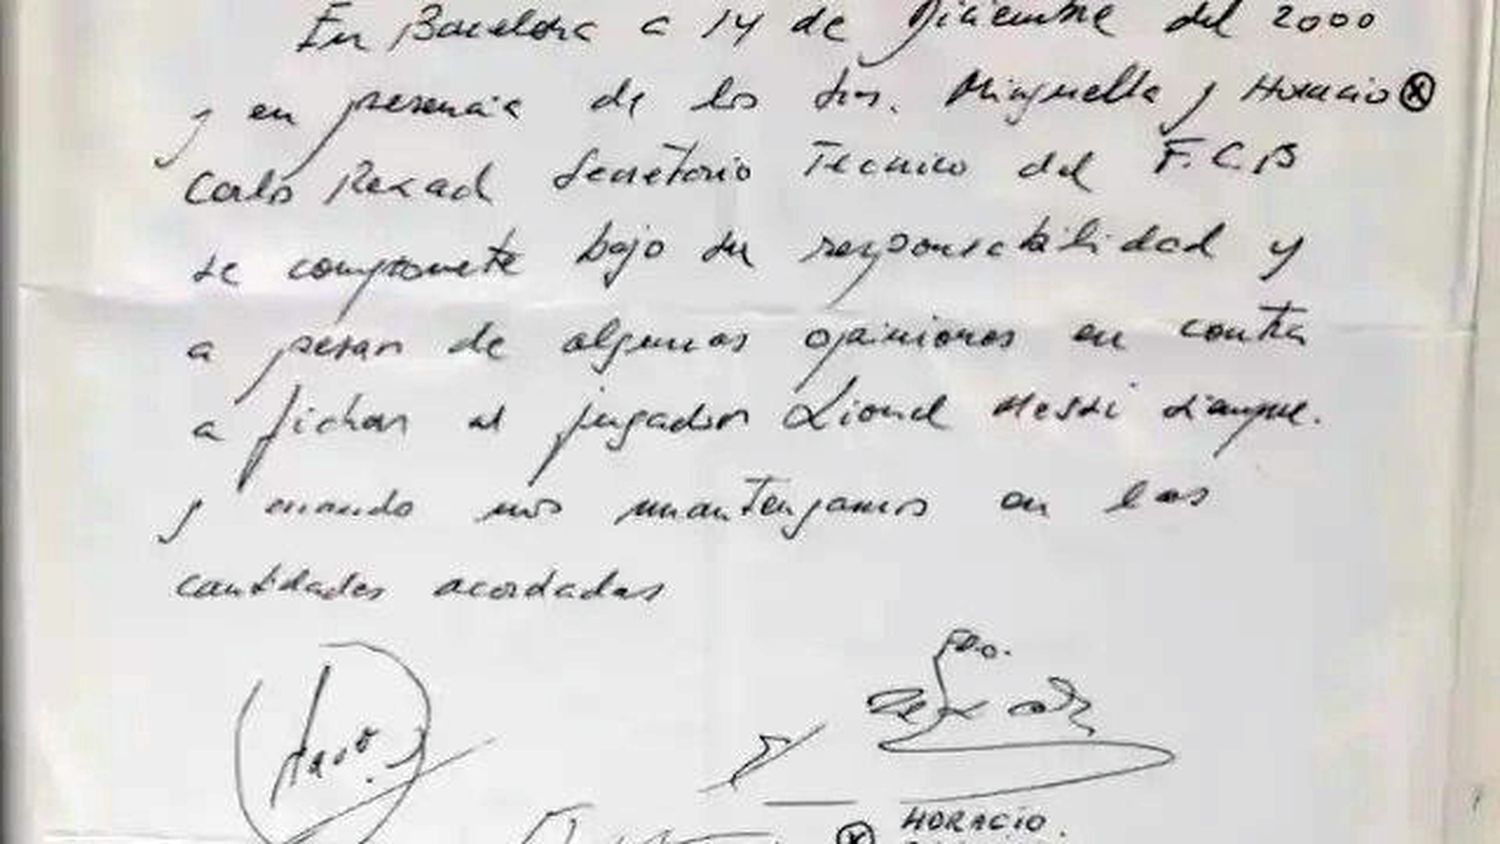 En Barcelona a 14 de Diciembre del 2000
y en presencia de los Srs. Minguella y Horacio ⓧ
Carlos Rexach Secretorio Tecnico del F.C.B
se compromete bajo su responsabilidad y
a pesar de algunas opiniones en contra
a fichar al jugador Lionel Messi siempre
y cuando nos mantengamos en las
cantidades acordadas
Fdo.
Rexach
ⓧ HORACIO.